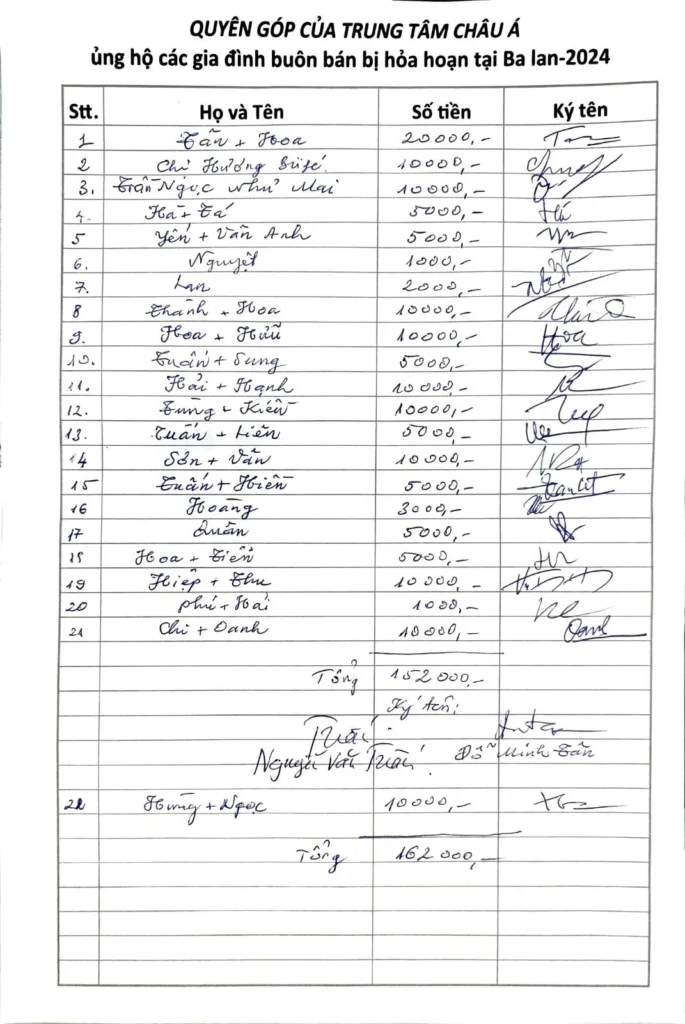 QUYÊN GÓP CỦA TRUNG TÂM CHÂU Á
ủng hộ các gia đình buôn bán bị hỏa hoạn tại Ba lan-2024
Stt. Họ và Tên Số tiền Ký tên
1 Tấn + Hoa 20000,-
2 Chị Hương 10000,-
3. Trần Ngọc Như Mai 10000,-
4. Hà + Tá 5000,- Há
5 Yến + Vân Anh 5000,-
6. Nguyệt 1000,-
7. Lan 2000,-
8 Thành + Hoa 10000,-
9. Hoa + Hữu 10000,- Hoa
10. Tuấn + Dung 5000,-
11. Hải + Hạnh 10000,-
12. Tùng + Kiên 10000,-
13. Tuấn + Liên 5000,-
14 Sơn + Vân 10000,-
15 Tuấn + Hiền 5000,-
16 Hoàng 3000,-
17 Quân 5000,-
18 Hoa + Tiến 5000,-
19 Hiệp + Thu 10000,-
20 Phú + Hải 1000,-
21 Chi + Oanh 10000,- Oanh
Tổng 152000,-
Ký tên:
Nguyễn Văn Tuấn Đỗ Minh Tấn
22 Hưng + Ngọc 10000,-
Tổng 162000,-